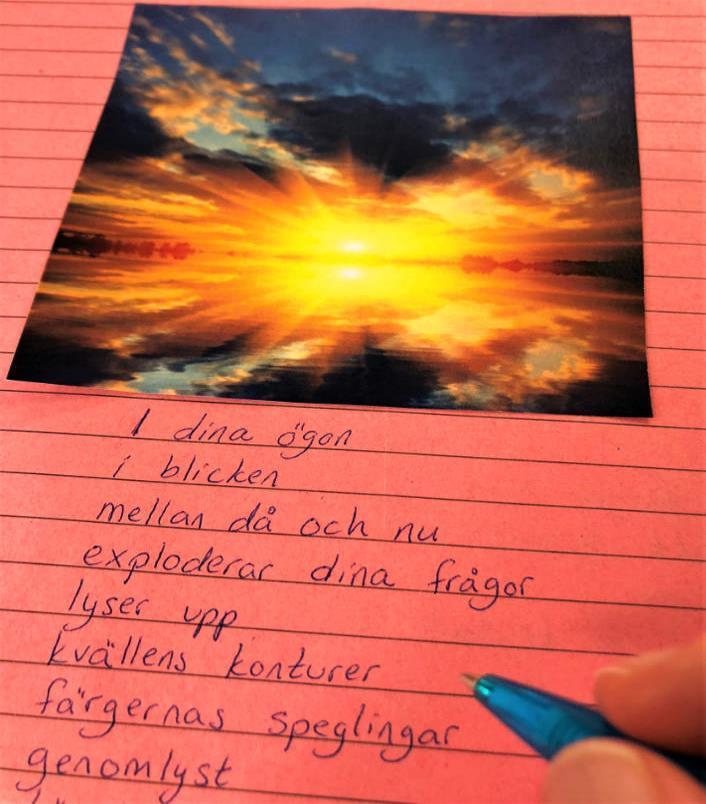 I dina ögon
i blicken
mellan då och nu
exploderar dina frågor
lyser upp
kvällens konturer
färgernas speglingar
genomlyst